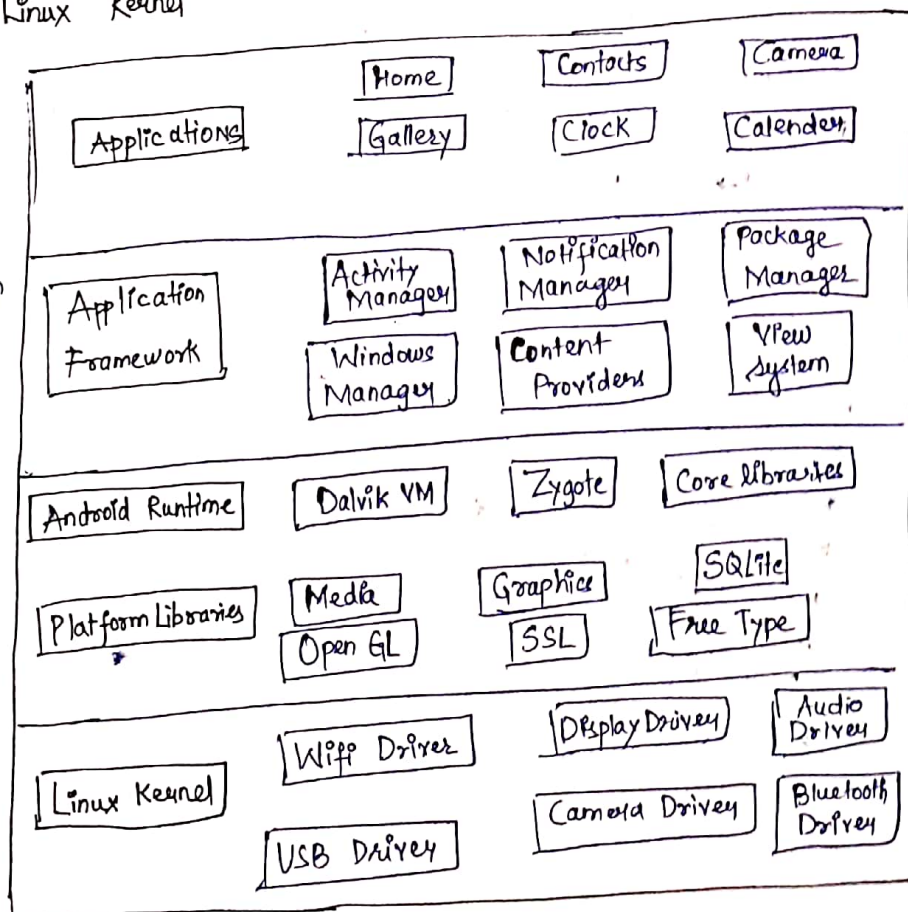 Linux Kernel
Home Contacts Camera
Applications Gallery Clock Calender
Application Framework
Activity Manager
Notification Manager
Package Manager
Windows Manager
Content Providers
View System
Android Runtime Dalvik VM Zygote Core libraries
Platform Libraries
Media Graphics SQLite
Open GL SSL Free Type
Linux Kernel
Wifi Driver Display Driver Audio Driver
USB Driver Camera Driver Bluetooth Driver